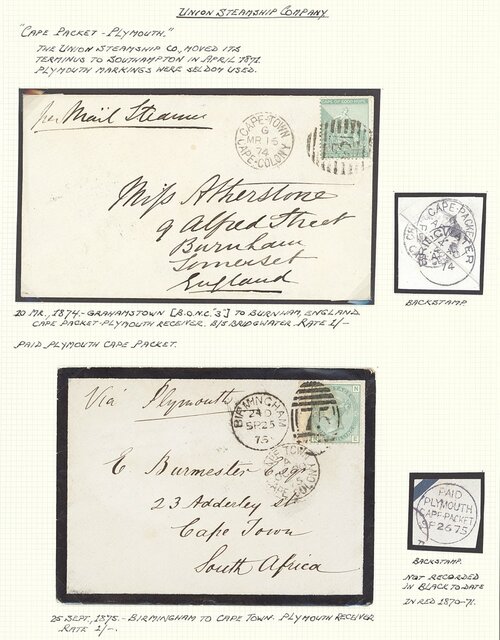 UNION STEAMSHIP COMPANY
"CAPE PACKET - PLYMOUTH."
THE UNION STEAMSHIP CO, MOVED ITS
TERMINUS TO SOUTHAMPTON IN APRIL 1871.
PLYMOUTH MARKINGS WERE SELDOM USED.
per Mail Steamer
CAPE-TOWN
G
MR 16
74
CAPE-COLONY
Miss Atherstone
9 Alfred Street
Burnham
Somerset
England
CAPE-PACKET
BRIDGWATER
74
BACKSTAMP
20 MR., 1874.- GRAHAMSTOWN [B.O.N.C. '3'] TO BURNHAM, ENGLAND
CAPE PACKET-PLYMOUTH RECEIVER. B/S BRIDGWATER. RATE 1/-
PAID PLYMOUTH CAPE PACKET.
Via Plymouth
BIRMINGHAM
SP 25
75
75
CAPE TOWN
CAPE COLONY
E Burmester Esqr
23 Adderley St
Cape Town
South Africa
PAID
PLYMOUTH
CAPE-PACKET
SP 26 75
BACKSTAMP.
NOT RECORDED
IN BLACK TO DATE
IN RED 1870-71.
25 SEPT, 1875.- BIRMINGHAM TO CAPE TOWN. PLYMOUTH RECEIVER
RATE 1/-.